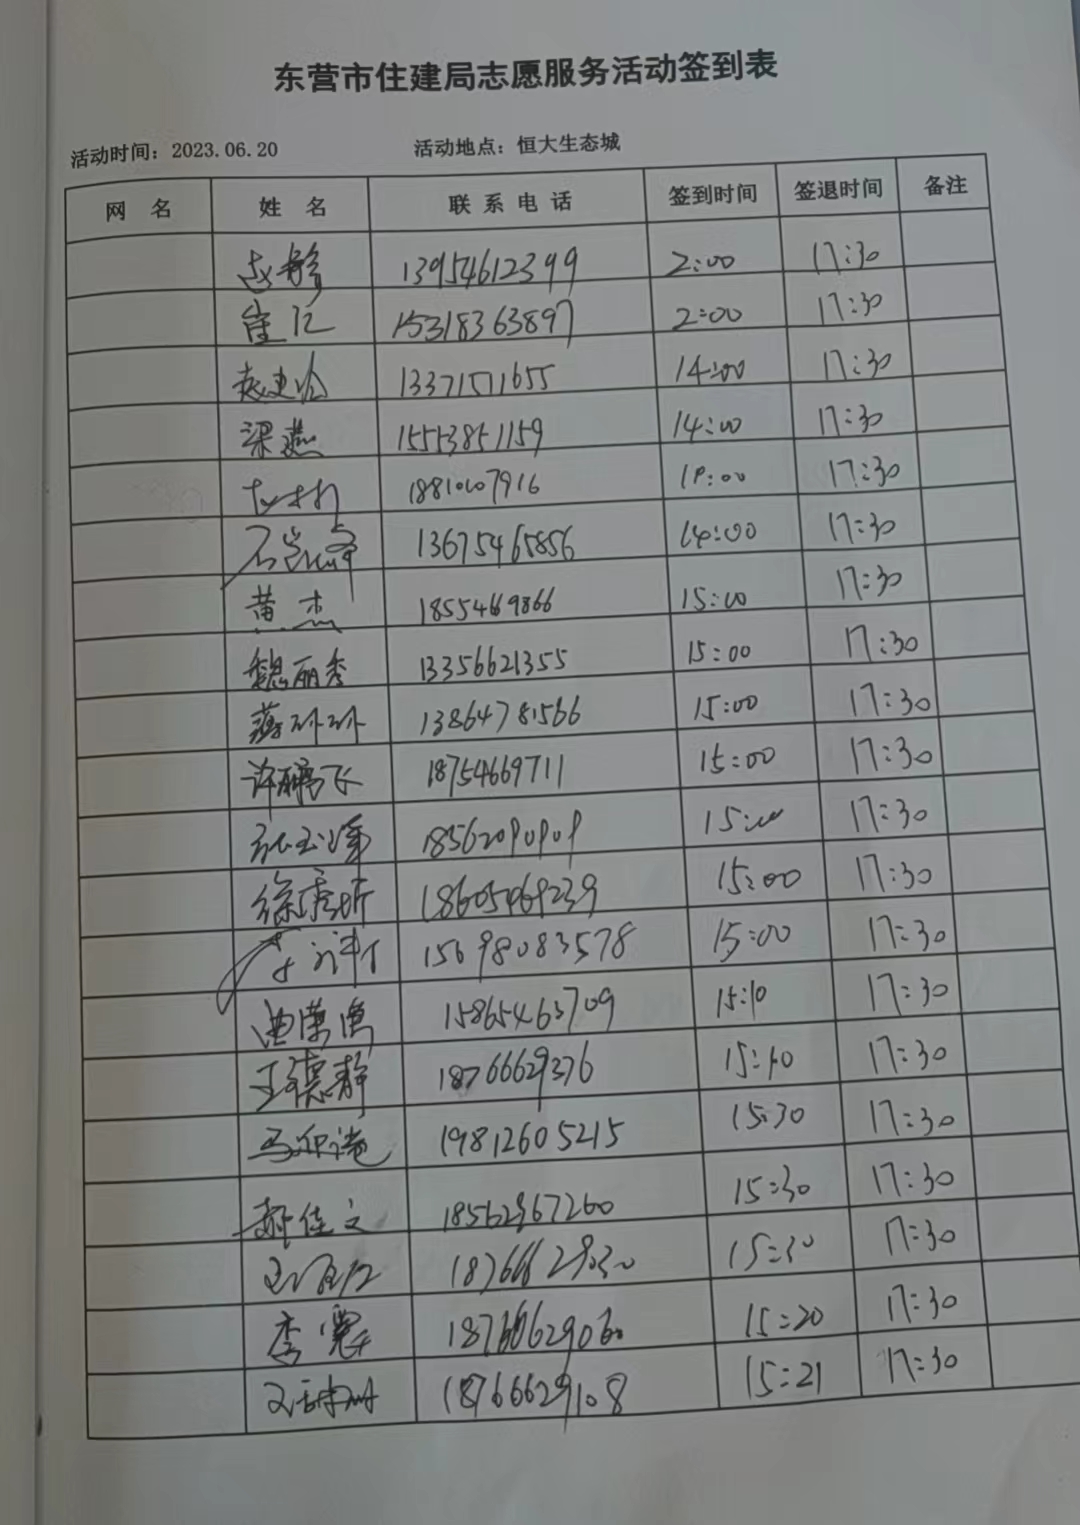 东营市住建局志愿服务活动签到表
活动时间：2023.06.20 活动地点：恒大生态城
网 名 姓 名 联 系 电 话 签到时间 签退时间 备注
13954612399 2:00 17:30
崔仁 15318363897 2:00 17:30
13371571655 14:00 17:30
梁燕 15553851159 14:00 17:30
17:30
石岩峰 13675465856 14:00 17:30
黄杰 18554669866 15:00 17:30
魏丽秀 13356621355 15:00 17:30
薄环环 13864781566 15:00 17:30
许鹏飞 18754669711 15:00 17:30
张玉峰 18562090909 15:00 17:30
18605469239 15:00 17:30
15698083578 15:00 17:30
曲潇潇 15865463709 15:10 17:30
王德静 18766629376 15:10 17:30
19812605215 15:30 17:30
郝佳文 18562967260 15:30 17:30
15:30 17:30
李 18766629060 15:20 17:30
18766629108 15:21 17:30